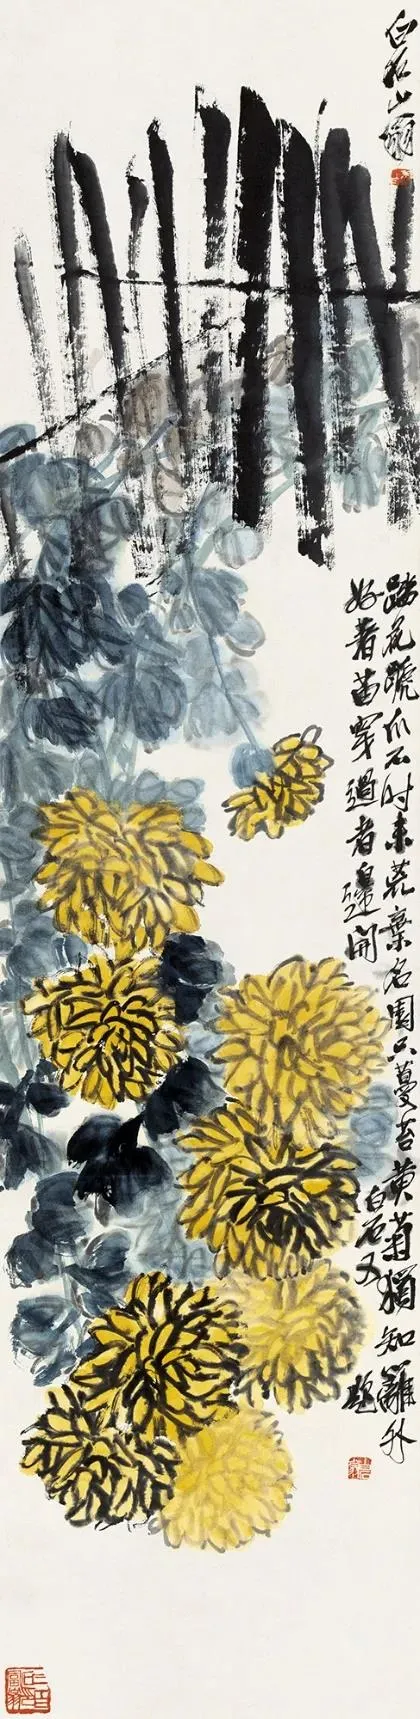 白石山翁
踏花蹏爪不時來荒棄名園只蔓苔黄菊猶知籬外
好着苗穿過者邊開
白石又題